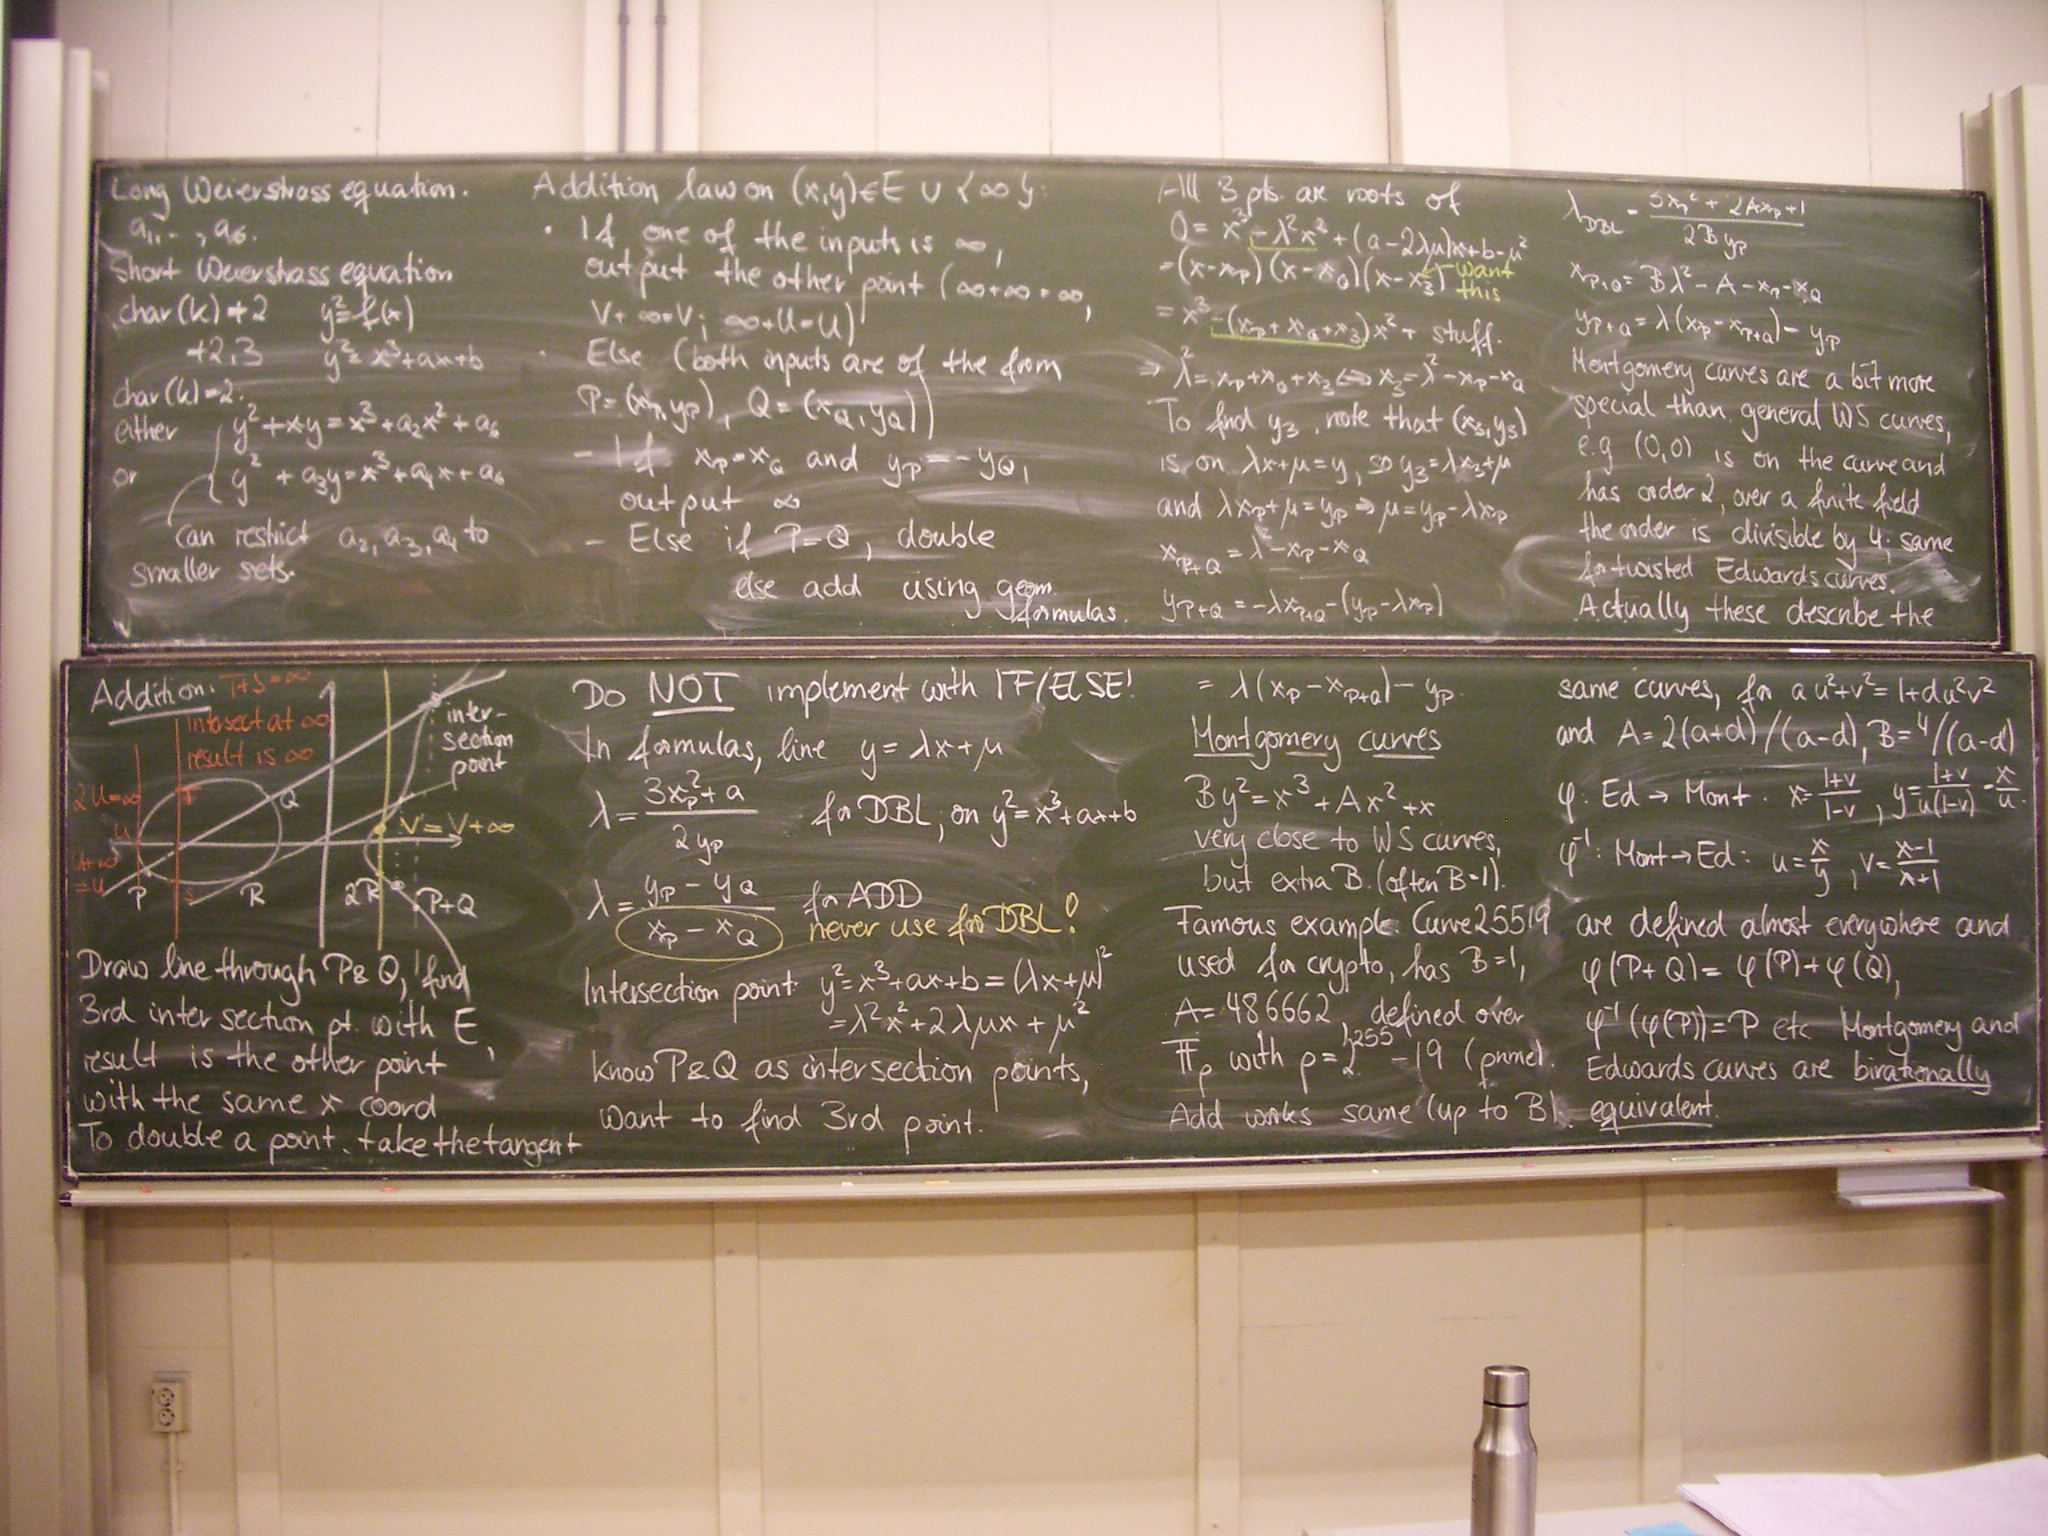 Long Weierstrass equation.
a₁, .. , a₆.
Short Weierstrass equation
char(k) ≠ 2 y² = f(x)
≠ 2,3 y² = x³+ax+b
char(k)=2:
either y² + xy = x³ + a₂x² + a₆
or y² + a₃y = x³ + a₄x + a₆
can restrict a₂, a₃, a₄ to
smaller sets.
Addition law on (x,y) ∈ E ∪ {∞}:
• If one of the inputs is ∞,
output the other point (∞+∞=∞,
V+∞=V; ∞+U=U)
• Else (both inputs are of the form
P=(x_P, y_P), Q=(x_Q, y_Q))
- If x_P = x_Q and y_P = -y_Q,
output ∞
- Else if P=Q, double
else add using geom.
formulas.
All 3 pts. are roots of
0 = x³ - λ²x² + (a-2λμ)x + b - μ²
= (x-x_P)(x-x_Q)(x-x₃) want
this
= x³ - (x_P + x_Q + x₃)x² + stuff.
⇒ λ² = x_P + x_Q + x₃ ⇔ x₃ = λ² - x_P - x_Q
To find y₃, note that (x₃,y₃)
is on λx+μ=y, so y₃=λx₃+μ
and λx_P+μ=y_P ⇒ μ=y_P-λx_P
x_P+Q = λ² - x_P - x_Q
y_P+Q = -λx_P+Q - (y_P - λx_P)
λ_DBL = 3x_P² + 2Ax_P + 1
2B y_P
x_P+Q = Bλ² - A - x_P - x_Q
y_P+Q = λ(x_P - x_P+Q) - y_P
Montgomery curves are a bit more
special than general WS curves,
e.g (0,0) is on the curve and
has order 2, over a finite field
the order is divisible by 4; same
for twisted Edwards curves.
Actually these describe the
Addition. T+S=∞
intersect at ∞
result is ∞
inter-
section
point
2U=∞
T
Q
U
V=V+∞
U+∞
=U
P
S
R
2R
P+Q
Draw line through P & Q, find
3rd intersection pt. with E,
result is the other point
with the same x coord
To double a point, take the tangent
Do NOT implement with IF/ELSE!
In formulas, line y = λx + μ
λ = (3x_P² + a) / 2y_P for DBL, on y² = x³+ax+b
λ = (y_P - y_Q) / (x_P - x_Q) for ADD
never use for DBL!
Intersection point: y² = x³+ax+b = (λx+μ)²
= λ²x² + 2λμx + μ²
know P & Q as intersection points,
want to find 3rd point.
= λ(x_P - x_P+Q) - y_P.
Montgomery curves
By² = x³ + Ax² + x
very close to WS curves,
but extra B. (often B=1).
Famous example: Curve25519
used for crypto, has B=1,
A = 486662, defined over
𝔽_p with p = 2²⁵⁵ - 19 (prime).
Add works same (up to B).
same curves, for au²+v² = 1+du²v²
and A = 2(a+d)/(a-d), B = 4/(a-d)
φ: Ed → Mont. x = (1+v)/(1-v), y = (1+v)/(u(1-v)) = x/u.
φ⁻¹: Mont → Ed: u = x/y, v = (x-1)/(x+1)
are defined almost everywhere and
φ(P+Q) = φ(P)+φ(Q),
φ⁻¹(φ(P)) = P etc Montgomery and
Edwards curves are birationally
equivalent.